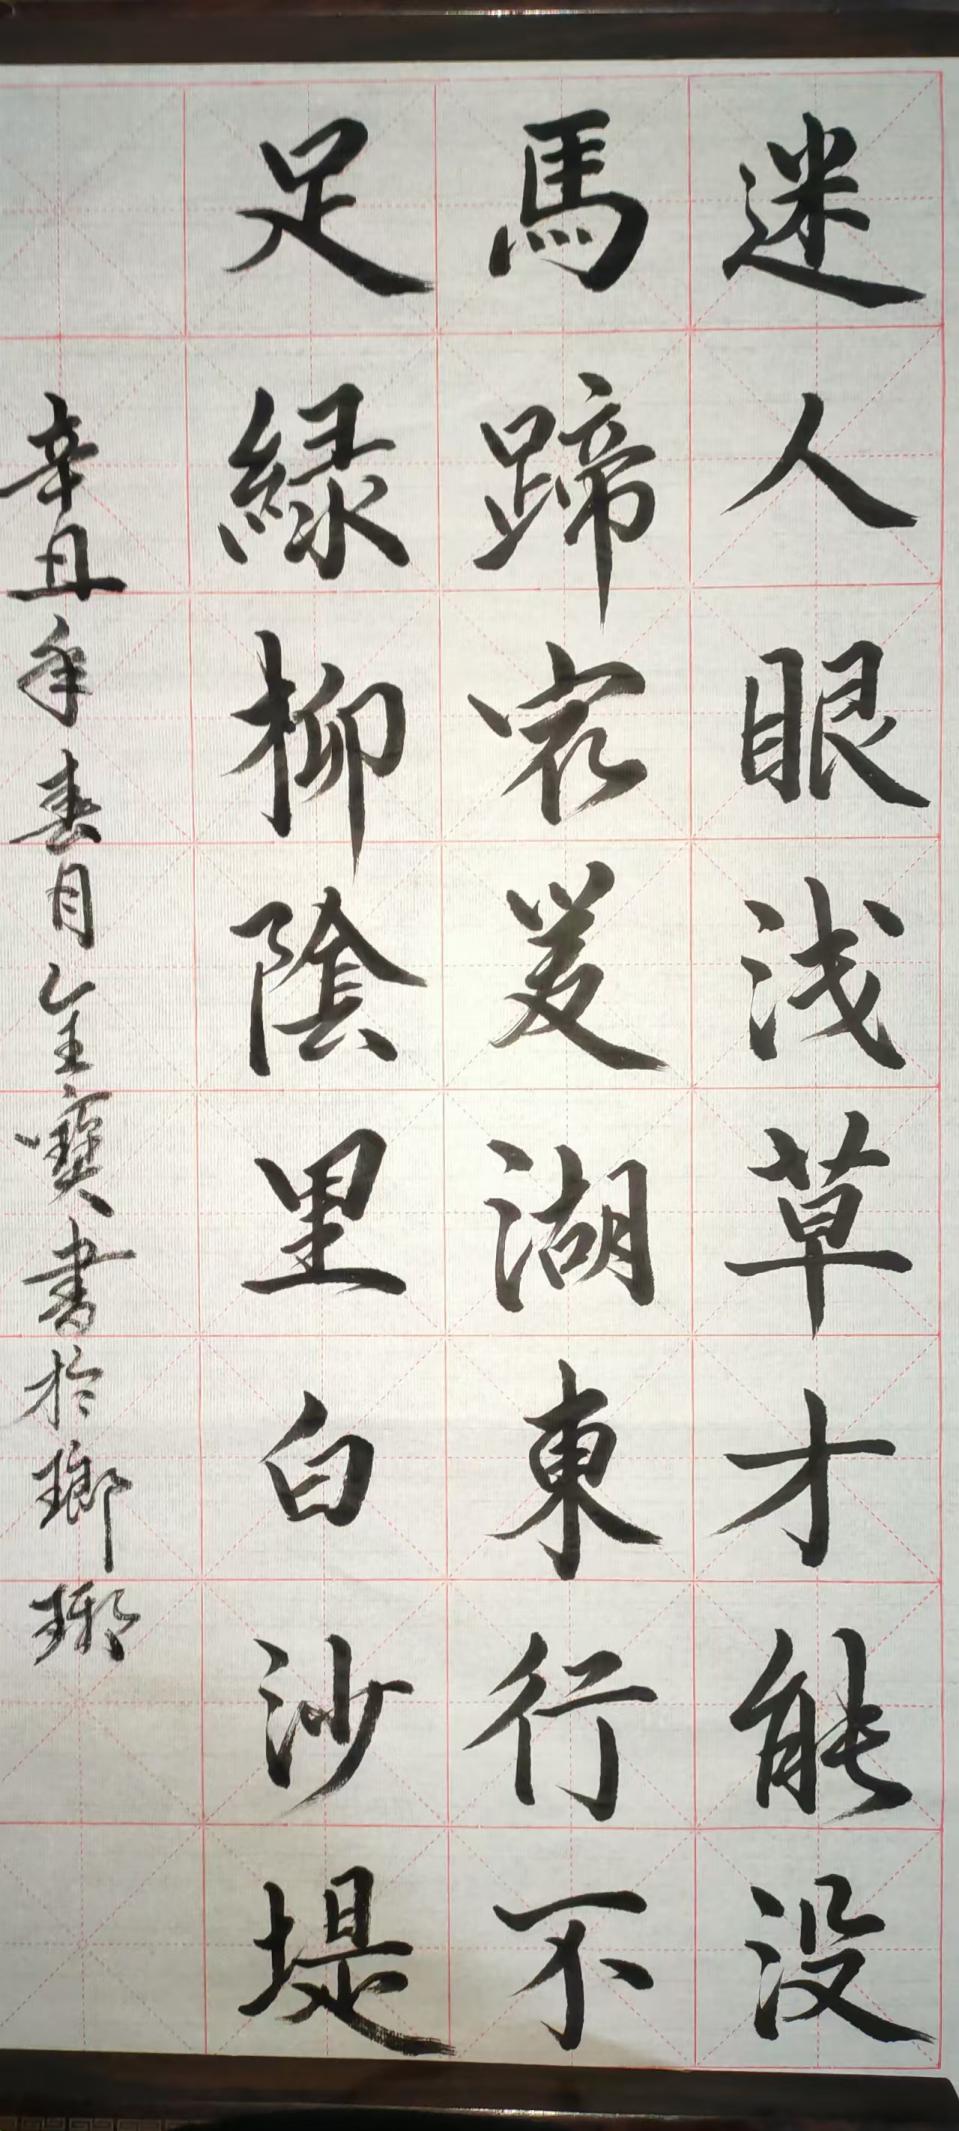 迷人眼浅草才能没
馬蹄宼爱湖東行不
足緑柳陰里白沙堤
辛丑年春月金寶書於瑯琊